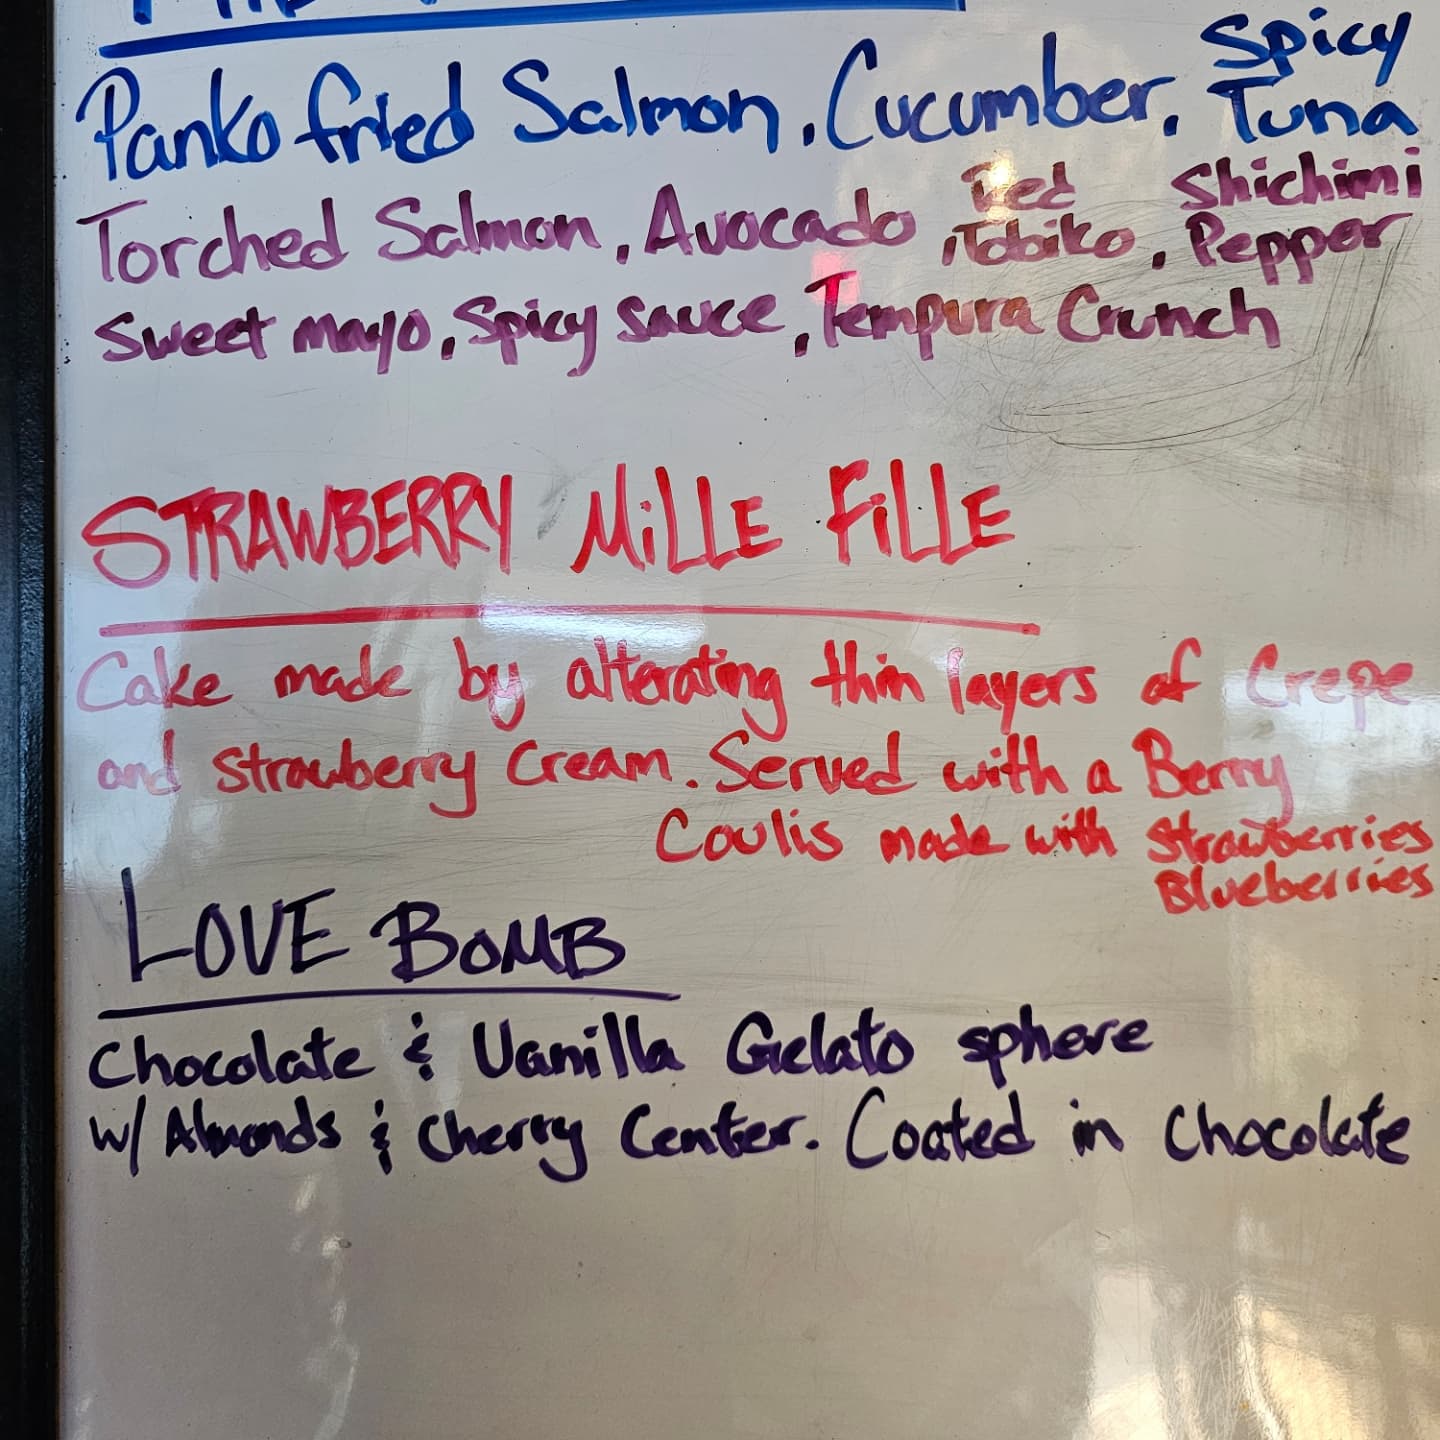 Panko fried Salmon, Cucumber, Spicy Tuna
Torched Salmon, Avocado, Red Tobiko, Shichimi Pepper
Sweet mayo, Spicy sauce, Tempura Crunch
STRAWBERRY MiLLE FiLLE
Cake made by alterating thin layers of Crepe
and strawberry cream. Served with a Berry
Coulis made with Strawberries
Blueberries
LOVE BOMB
Chocolate & Vanilla Gelato sphere
w/ Almonds & Cherry Center. Coated in Chocolate